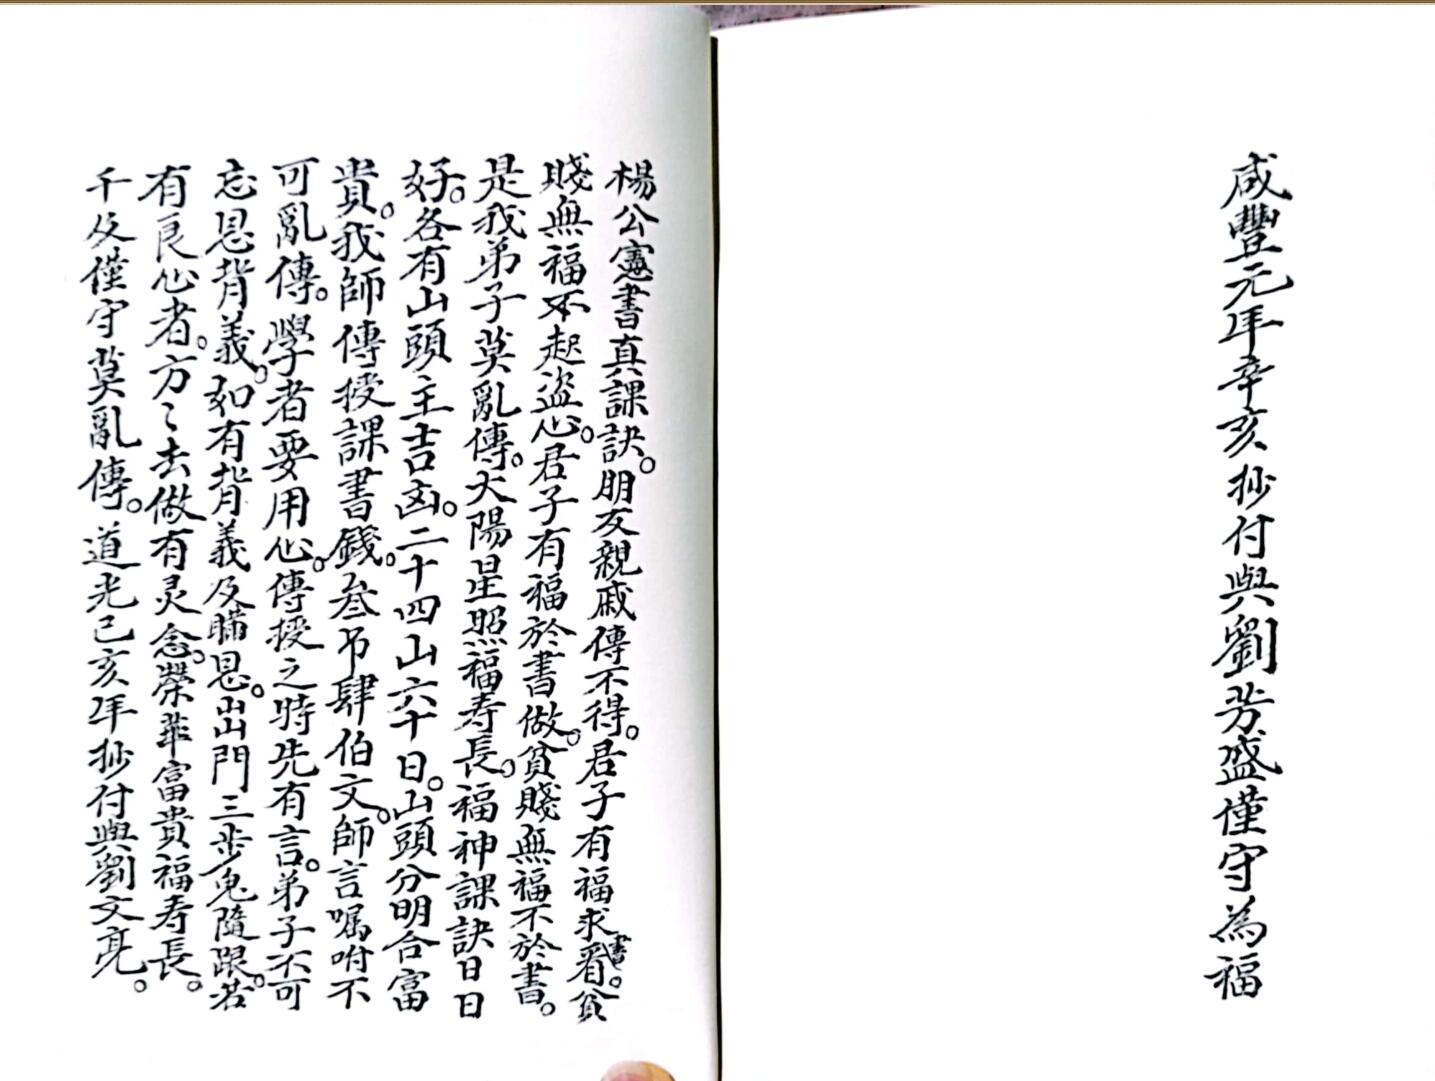 咸豐元年辛亥抄付與劉芳盛僅守為福
楊公憲書真課訣。朋友親戚傳不得。君子有福求看書。貧
賤無福不起盜心。君子有福於書做。貧賤無福不於書。
是我弟子莫亂傳。大陽星照福寿長。福神課訣日日
好。各有山頭主吉凶。二十四山六十日。山頭分明合富
貴。我師傳授課書錢。叁吊肆伯文。師言嘱咐不
可亂傳。學者要用心。傳授之時先有言。弟子不可
忘恩背義。如有背義及瞞恩。出門三步鬼隨跟。若
有良心者。方〻去做有灵念。榮華富貴福寿長。
千及僅守莫亂傳。道光己亥年抄付與劉文亮。